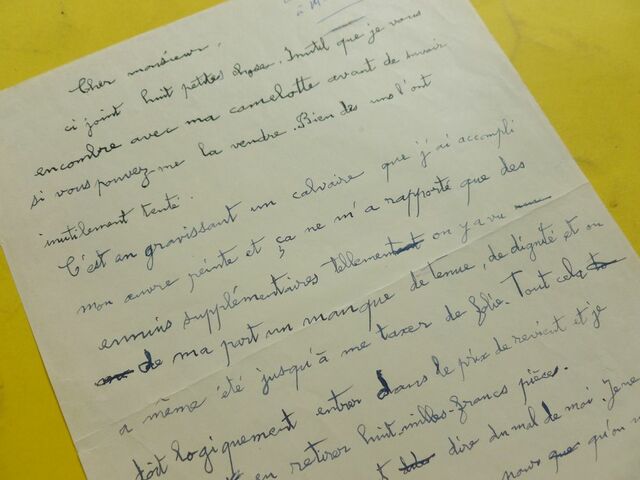 à M
Cher monsieur,
ci joint huit petites chose. Inutil que je vous
encombre avec ma camelotte avant de savoir
si vous pouvez me la vendre. Bien des uns l'ont
inutilement tenté.
C'est en gravissant un calvaire que j'ai accompli
mon œuvre peinte et ça ne m'a rapporté que des
ennuis supplémentaires tellement on y a vu
de ma part un manque de tenue, de dignité et on
a même été jusqu'à me taxer de folie. Tout cela
doit logiquement entrer dans le prix de revient et je
en retirer huit milles-francs pièces.
dire du mal de moi. Je ne
pour que qu'on